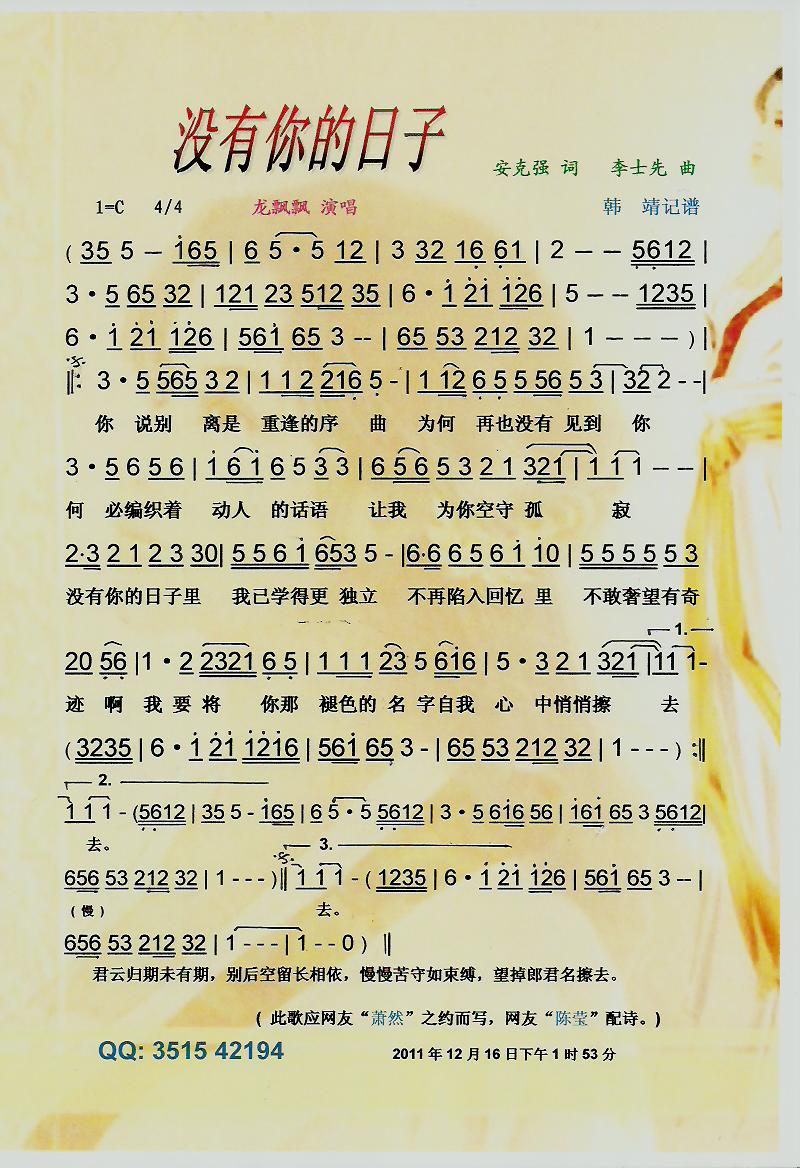 没有你的日子
安克强 词 李士先 曲
1=C 4/4 龙飘飘 演唱 韩 靖记谱
( 35 5 — 165 | 6 5 · 5 12 | 3 32 16 61 | 2 — — 5612 |
3 · 5 65 32 | 121 23 512 35 | 6 · 1 21 126 | 5 — — 1235 |
6 · 1 21 126 | 561 65 3 -- | 65 53 212 32 | 1 — — — ) |
‖: 3 · 5 565 3 2 | 1 1 2 216 5 - | 1 12 6 5 5 56 5 3 | 32 2 - - |
你 说别 离是 重逢的序 曲 为何 再也没有 见到 你
3 · 5 6 5 6 | 1 6 1 6 5 3 3 | 6 5 6 5 3 2 1 321 | 1 1 1 — — |
何 必编织着 动人 的话语 让我 为你空守 孤 寂
2·3 2 1 2 3 30 | 5 5 6 1 653 5 - | 6·6 6 5 6 1 10 | 5 5 5 5 5 3
没有你的日子里 我已学得更 独立 不再陷入回忆 里 不敢奢望有奇
1.
20 56 | 1 · 2 2321 6 5 | 1 1 1 23 5 616 | 5 · 3 2 1 321 | 11 1-
迹 啊 我 要 将 你那 褪色的 名 字自我 心 中悄悄擦 去
( 3235 | 6 · 1 21 1216 | 561 65 3 - | 65 53 212 32 | 1 - - - ) :‖
2.
1 1 1 - (5612 | 35 5 - 165 | 6 5 · 5 5612 | 3 · 5 616 56 | 161 65 3 5612 |
去。
3.
656 53 212 32 | 1 - - - )‖ 1 1 1 - ( 1235 | 6 · 1 21 126 | 561 65 3 -- |
(慢) 去。
656 53 212 32 | 1 - - - | 1 - - 0 ) ‖
君云归期未有期，别后空留长相依，慢慢苦守如束缚，望掉郎君名擦去。
( 此歌应网友“萧然”之约而写，网友“陈莹”配诗。)
QQ: 3515 42194 2011 年 12 月 16 日下午 1 时 53 分